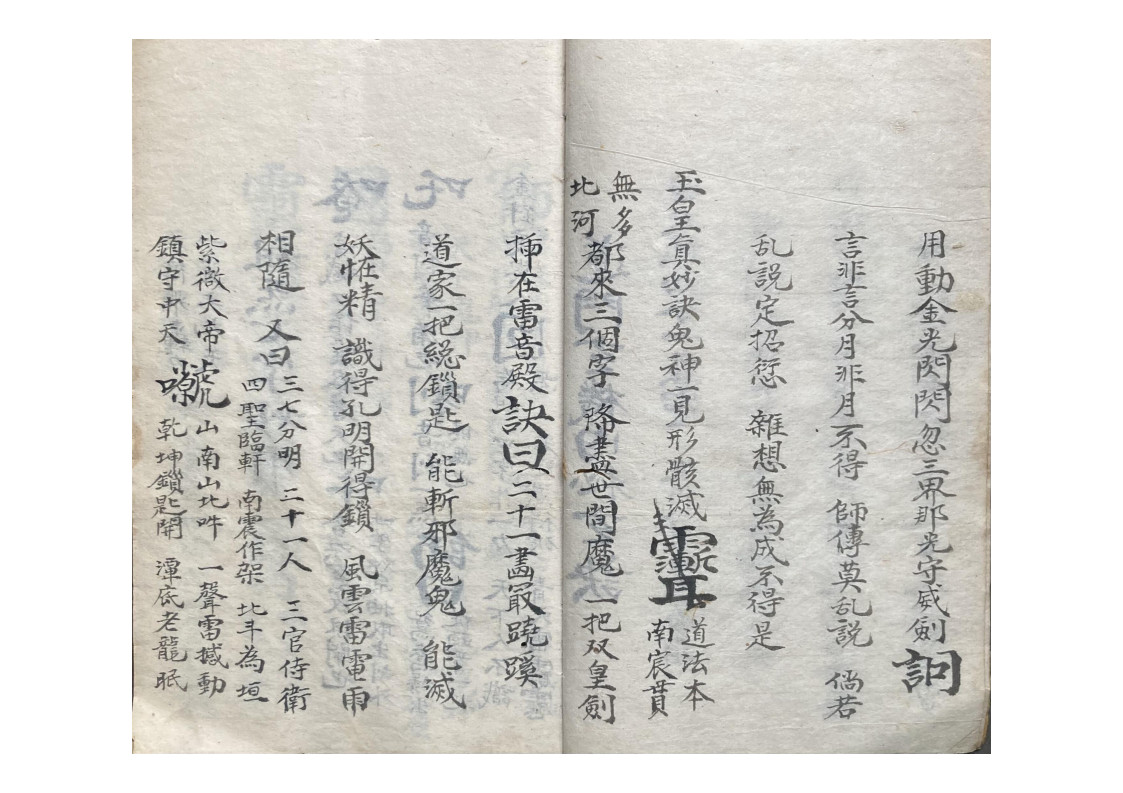 用動金光閃閃忽三界那光守威劍 訶
言非言分月非月不得 師傳莫乱説 倘若
乱説定招愆 雜想無為成不得是
玉皇真妙訣鬼神一見形骸滅 道法本
無多 南宸貫
北河 都來三個字 降盡世間魔 一把双皇劍
插在雷音殿 訣曰 二十一畫最蹺蹊
道家一把總鎖匙 能斬邪魔鬼 能滅
妖怪精 識得孔明開得鎖 風雲雷電雨
相隨 又曰 三七分明 二十一人 三官侍衛
四聖臨軒 南震作架 北斗為垣
紫微大帝 山南山北吽 一聲雷撼動
鎮守中天 乾坤鎖匙開 潭底老龍眠